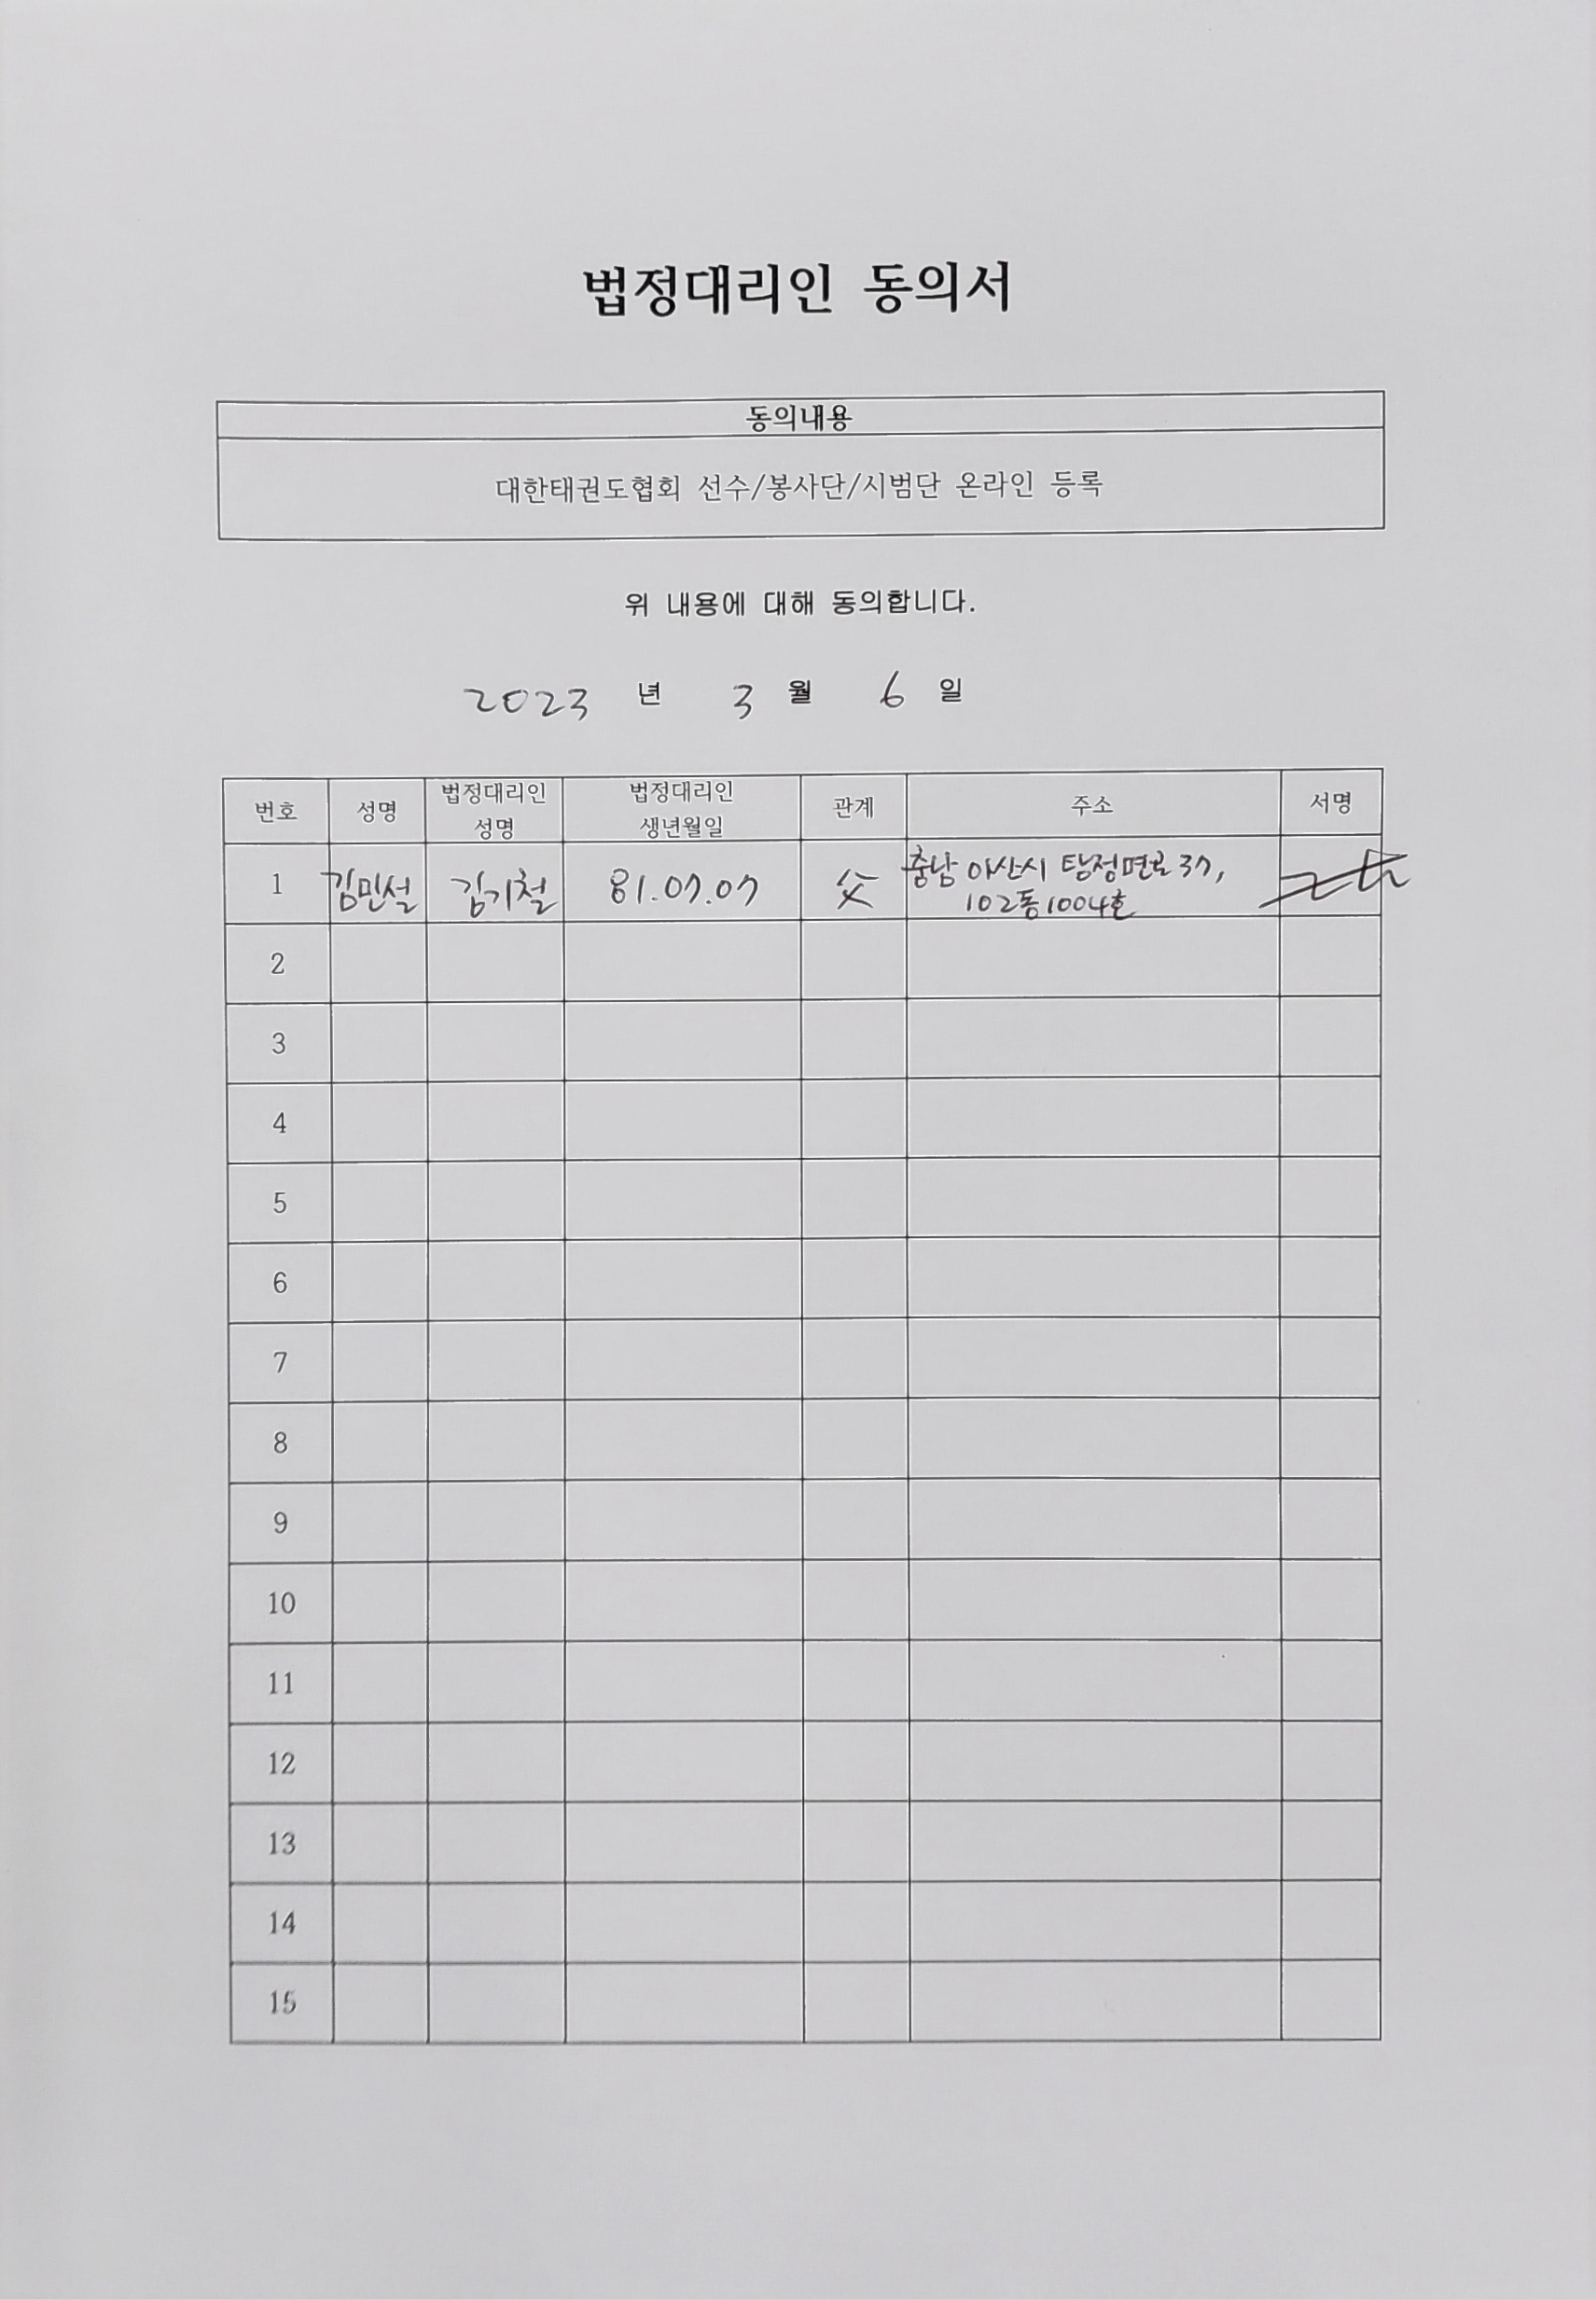 법정대리인 동의서
동의내용
대한태권도협회 선수/봉사단/시범단 온라인 등록
위 내용에 대해 동의합니다.
2023 년 3 월 6 일
번호 성명 법정대리인 성명 법정대리인 생년월일 관계 주소 서명
1 김민설 김기철 81.07.07 父 충남 아산시 탕정면로 37,
102동 1004호
2
3
4
5
6
7
8
9
10
11
12
13
14
15